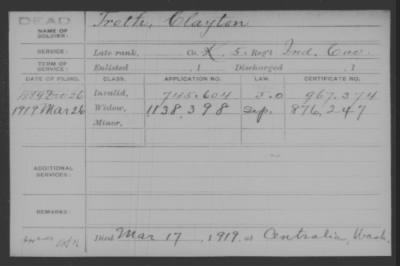 DEAD
NAME OF SOLDIER: Troth, Clayton
SERVICE: Late rank, Co. K, 5 Reg't Ind. Cav.
TERM OF SERVICE: Enlisted , 1 Discharged , 1
DATE OF FILING. CLASS. APPLICATION NO. LAW. CERTIFICATE NO.
Invalid, 745.604 967.374
1919 Mar 26 Widow, 1138,398 876,247
Minor,
ADDITIONAL SERVICES:
REMARKS:
Died Mar 17, 1919, at Centralia, Wash.